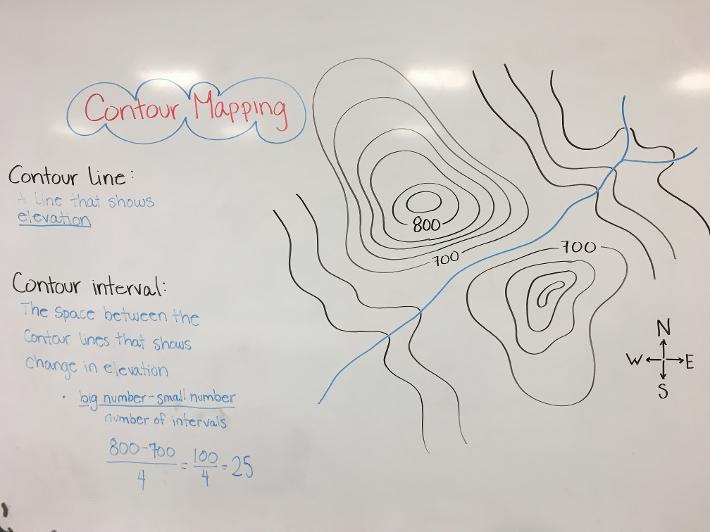 Contour Mapping
Contour line:
A line that shows
elevation
Contour interval:
The space between the
Contour lines that shows
change in elevation
• big number - small number
number of intervals
800-700
4
= 100
4
= 25
800
700
700
N
W E
S